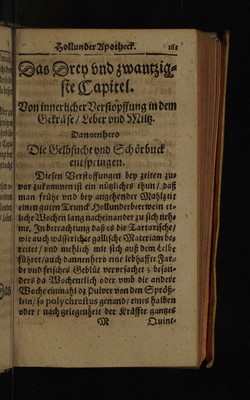 Hollunder Apotheck. 161
Das Drey vnd zwantzig-
ste Capitel.
Von innerlicher Verstopffung in dem
Gekräse/ Leber vnd Miltz.
Dannenhero
Die Gelbsucht vnd Schörbuck
entspringen.
Diesen Verstoffungen bey zeiten zu
vor zukommen ist ein nützliches thun/ daß
man frühe vnd bey angehender Mahlzeit
einen guten Trunck Hollunderberwein et-
liche Wochen lang nacheinander zu sich neh-
me. In betrachtung daß es die Tartarische/
wie auch wässerichte gallische Materiam be-
reitet/ vnd mehlich mit sich auß dem Leibe
führet/ auch dannenhero eine lebhaffte Far-
be vnd frisches Geblüt verorsachet/ beson-
ders da Wochentlich oder vmb die andere
Woche einmahl dz Pulver von den Sprößlein/
so polychroitus genand/ eines halben
oder/ nach gelegenheit der Kräffte gantzes
M Quint-